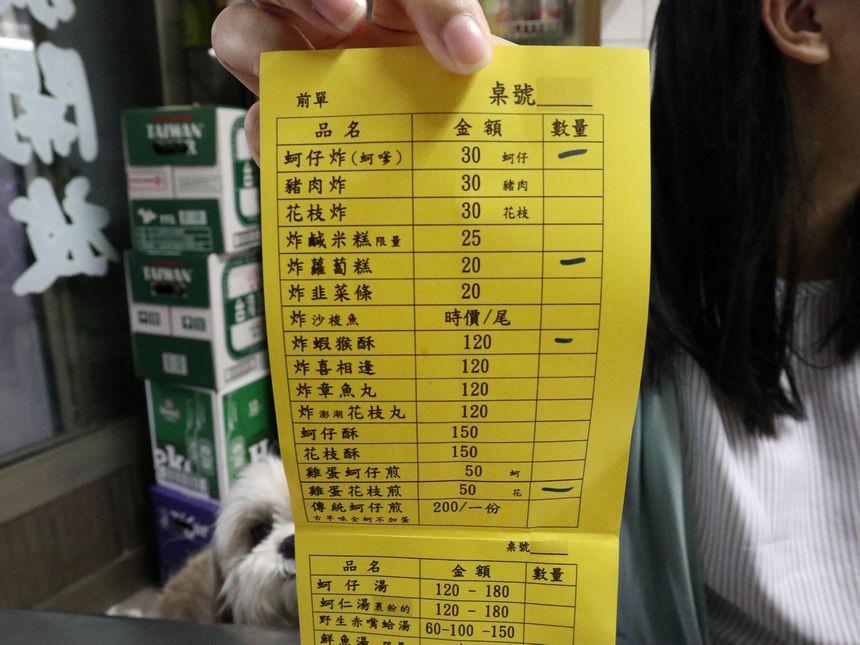 前單 桌號
品名 金額 數量
蚵仔炸(蚵嗲) 30 蚵仔 一
豬肉炸 30 豬肉
花枝炸 30 花枝
炸鹹米糕限量 25
炸蘿蔔糕 20 一
炸韭菜條 20
炸沙梭魚 時價/尾
炸蝦猴酥 120 一
炸喜相逢 120
炸章魚丸 120
炸澎湖花枝丸 120
蚵仔酥 150
花枝酥 150
雞蛋蚵仔煎 50 蚵
雞蛋花枝煎 50 花 一
傳統蚵仔煎 200/一份
古早味全蚵不加蛋
桌號
品名 金額 數量
蚵仔湯 120 - 180
蚵仁湯裹粉的 120 - 180
野生赤嘴蛤湯 60-100 -150
鮮魚湯
TAIWAN
TAIWAN
Tiger